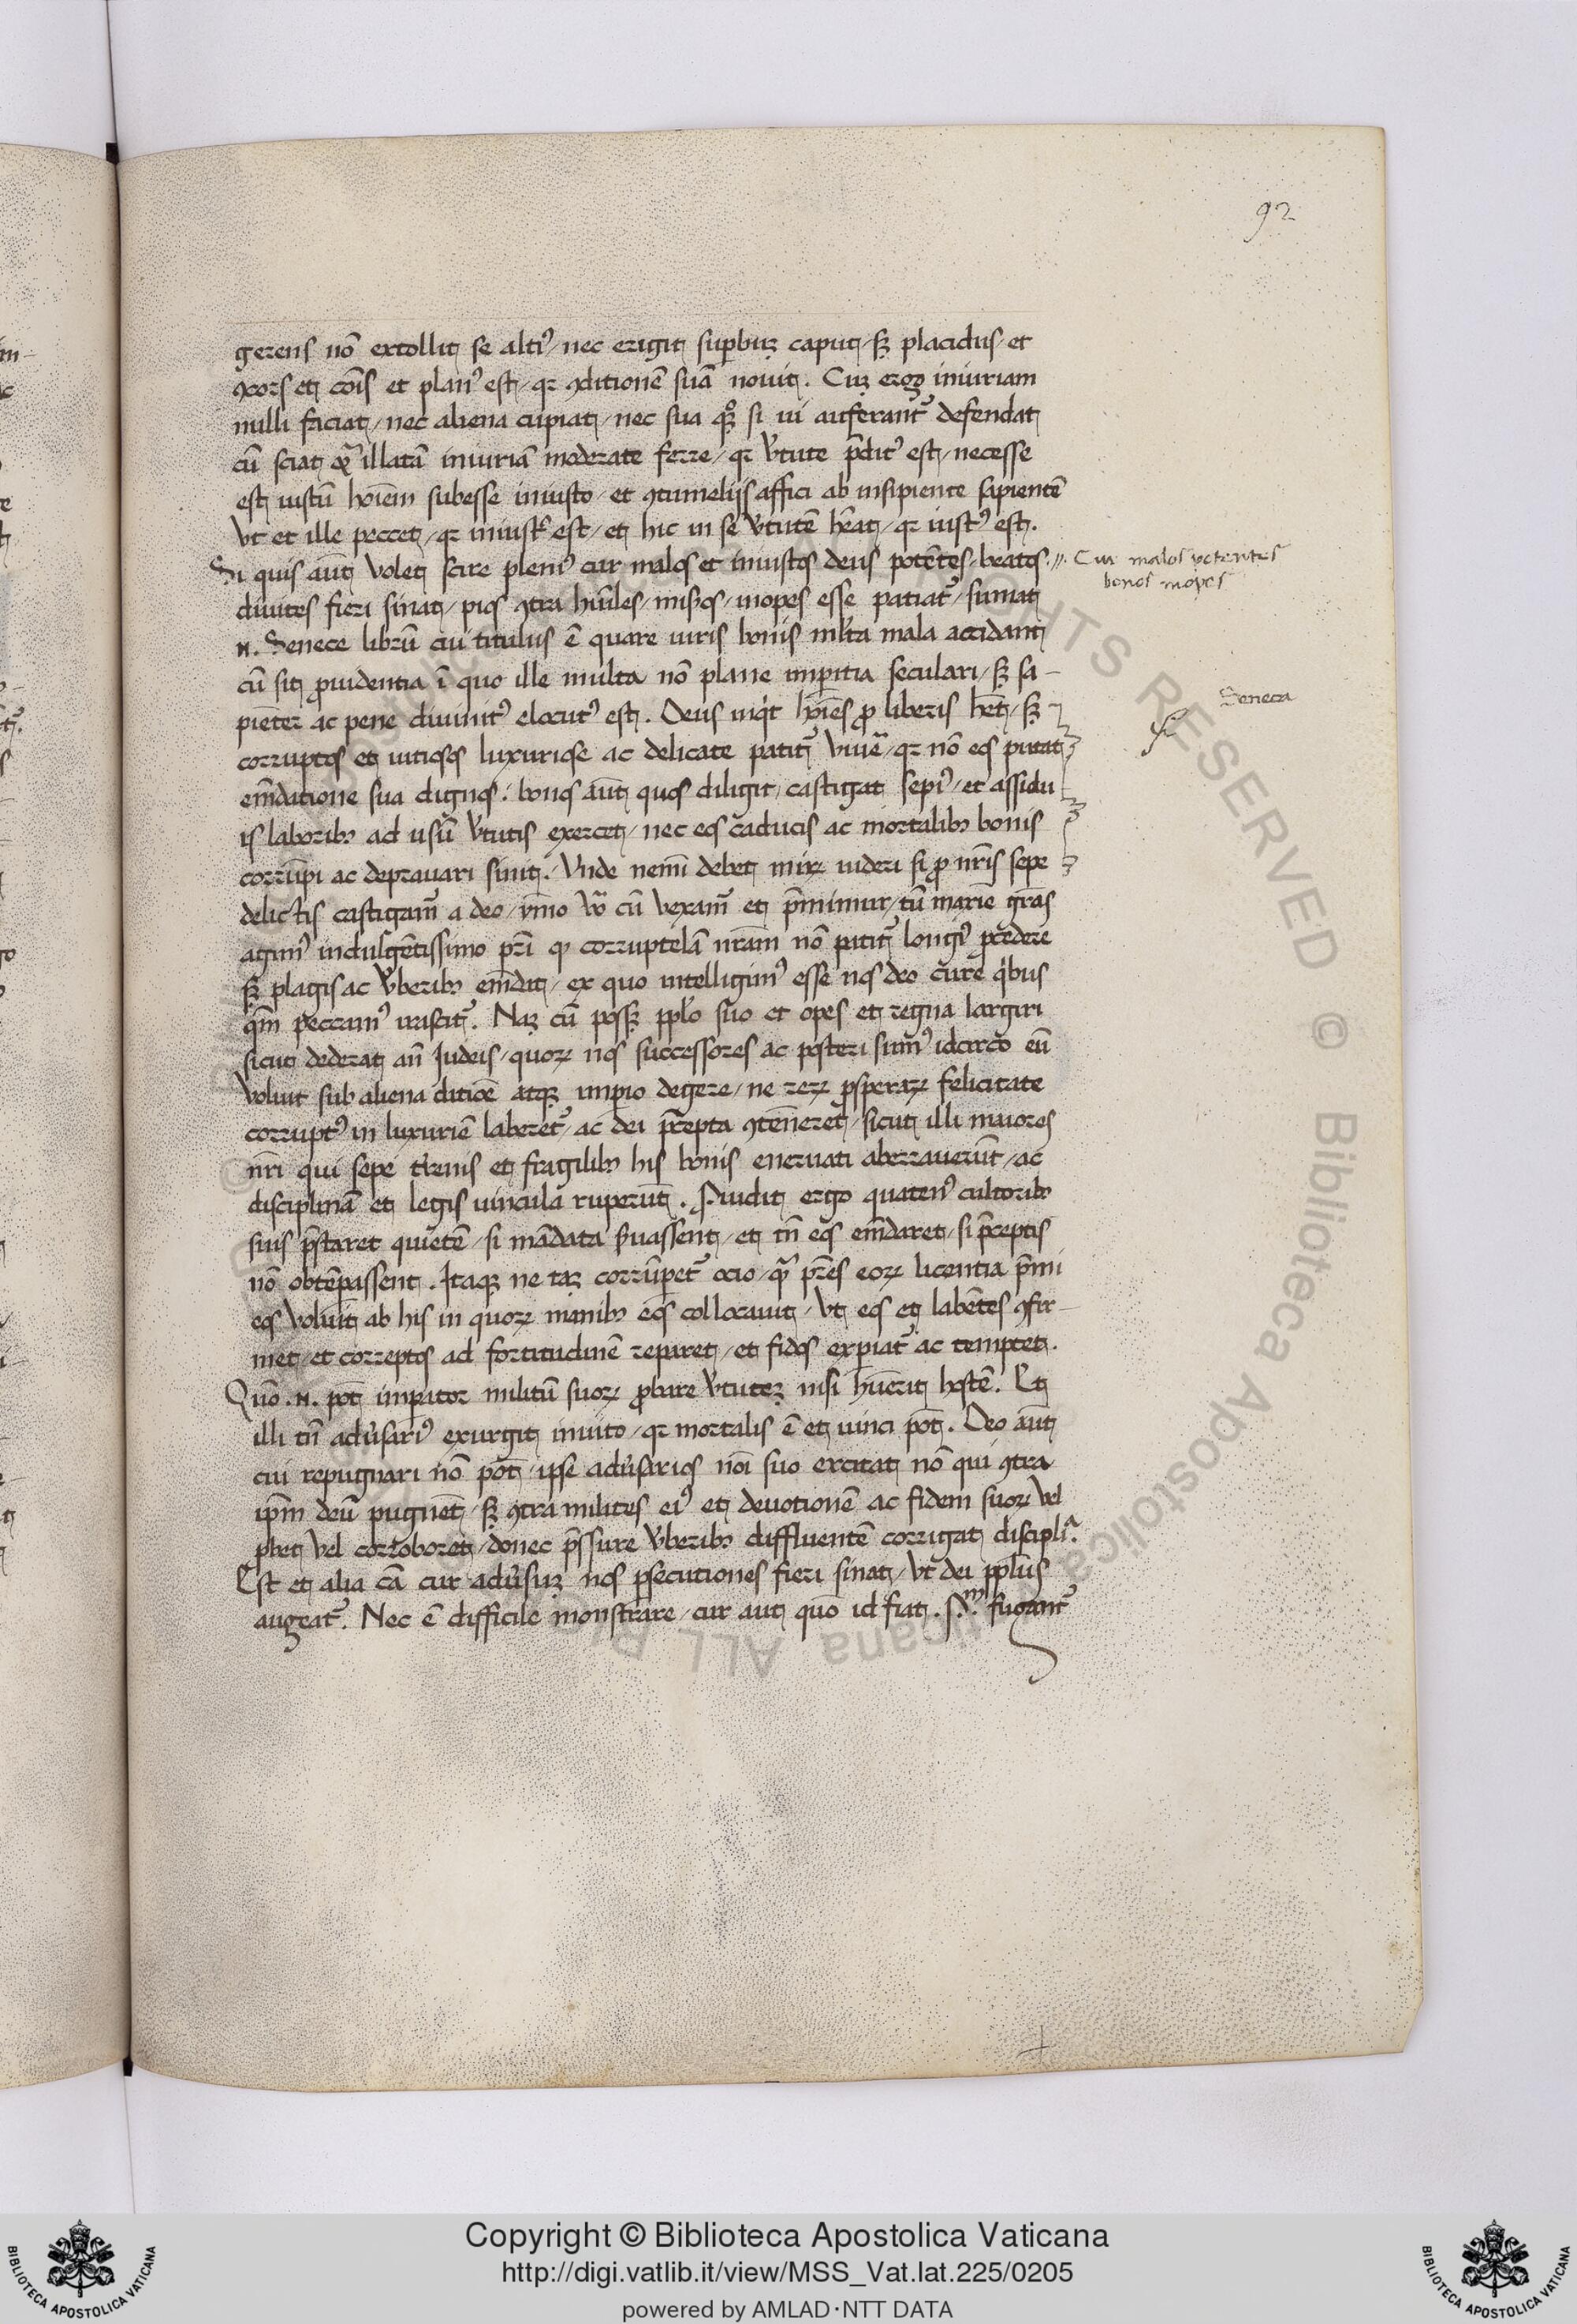 92
gerens nō extollit se altiꝰ / nec erigit suꝑbuꝫ caput / sꝫ placidus et
ꝯcors et cōis et planꝰ est / qꝛ ꝯditionē suā nouit. Cuꝫ ergo iniuriam
nulli faciat / nec aliena cupiat / nec sua qͦꝫ si ui auferant᷑ defendat
cū sciat illatā iniuriā moderate ferre / qꝛ v̓tute p̄ditꝰ est / necesse
est iustū hōiem subesse iniusto / et ꝯtumelijs affici ab insipiente sapientē
vt et ille peccet / qꝛ iniustꝰ est / et hic in se v̓tutē hēat / qꝛ iustꝰ est.
Si quis aūt volet scire pleniꝰ cur malos et iniustos deus potētes / beatos //
Cur malos potentes
bonos inopes
diuites fieri sinat / pios ꝯtra hūiles / mis̓os / inopes esse patiat᷑ / sumat
.n. Senece librū cui titulus ē quare uiris bonis ml̓ta mala accidant
cū sit ꝓuidentia ī quo ille multa nō plane imꝑitia seculari / sꝫ sa-
Seneca
pient̓ ac pene diuinitꝰ elocutꝰ est. Deus inqͥt hōies ꝓ liberis hēt / sꝫ
corruptos et uitiosos luxuriose ac delicate patit᷑ viue̓ / qꝛ nō eos putat
emēdatione sua dignos. bonos aūt quos diligit / castigat sepiꝰ / et assidu
is laboribꝫ ad usū v̓tutis exercet / nec eos caducis ac mortalibꝫ bonis
corrūpi ac deprauari sinit. Vnde nemī debet mirꝫ uideri si ꝓ nr̄is sepe
delictis castigam᷑ a deo / ymo v̓o cū vexam᷑ et p̄mimur / tū grās
agimꝰ indulgētissimo pr̄i ꝙ corruptelā nr̄am nō patit᷑ longiꝰ ꝓcedere
sꝫ plagis ac v̓beribꝫ emēdat / ex quo intelligimꝰ esse nos deo cure qͥbus
qm̄ peccamꝰ irascit᷑. Naꝫ cū possꝫ ppl̓o suo et opes et regna largiri
sicut dederat an̄ Iudeis / quoꝝ nos successores ac posteri sumꝰ idcirco eū
voluit sub aliena ditiōe atqꝫ imꝑio degere / ne reꝝ ꝓsperaꝝ felicitate
corruptꝰ in luxuriē laberet᷑ / ac dei p̄cepta ꝯtēneret / sicut illi maiores
nr̄i qui sepe t̓renis et fragilibꝫ his bonis eneruati aberrauerūt / ac
disciplinā et legis uincula ruperūt. Prouidit ergo quatenꝰ cultoribꝫ
suis p̄staret quietē / si mādata s̓uassent / et tn̄ eos emēdaret / si p̄ceptis
nō obtēꝑassent. Itaqꝫ ne taꝫ corrūperet᷑ ocio / qͣ pr̄es eoꝝ licentia p̄mi
eos voluit ab his in quoꝝ manibꝫ eos collocauit / vt eos et labētes ꝯfir-
met / et correptos ad fortitudinē reparet / et fidos exꝑiat᷑ ac temptet.
Quō .n. pōt imꝑator militū suoꝝ ꝓbare v̓tuteꝫ nisi hūerit hostē. Et
illi tn̄ adu̓sariꝰ exurgit inuito / qꝛ mortalis ē et uinci pōt. Deo aūt
cui repugnari nō pōt / ipse adu̓sarios noī suo excitat nō qui ꝯtra
ip̄m deū pugnēt / sꝫ ꝯtra milites eiꝰ et deuotionē ac fidem suoꝝ vel
ꝓbet vel corroboret / donec p̄ssure v̓beribꝫ diffluentē corrigat discipliᵃ.
Est et alia cā cur adu̓suꝫ nos ꝑsecutiones fieri sinat / vt dei ppl̓us
augeat᷑. Nec ē difficile monstrare / cur aut quō id fiat. Pᵐ. fugant᷑
Copyright © Biblioteca Apostolica Vaticana
http://digi.vatlib.it/view/MSS_Vat.lat.225/0205
powered by AMLAD·NTT DATA
BIBLIOTECA APOSTOLICA VATICANA
BIBLIOTECA APOSTOLICA VATICANA